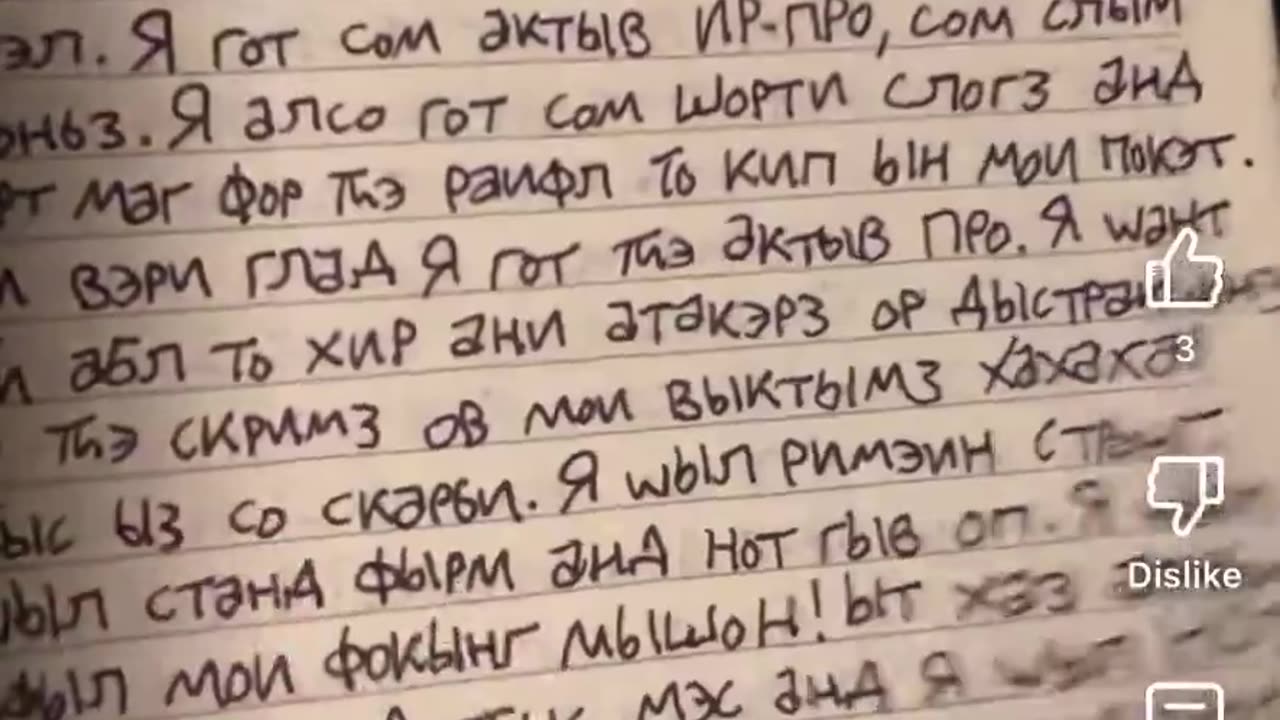 эл. Я гот сом әктыв ИР-ПРО, сом слым
Я әлсо гот сом шорти слогз әнд
мәг фор тһэ раифл то кип ын мои покэт.
вэри гләд Я гот тһэ әктыв про. Я wант
әбл то хир әни әтәкэрз ор
3
тһэ скримз ов мои выктымз
ыз со скәрьи. Я wыл римэин
wыл стәнд фырм әнд нот гыв оп. Я
мои фокынг мышон! ыт хәз
Dislike
мэс әнд Я